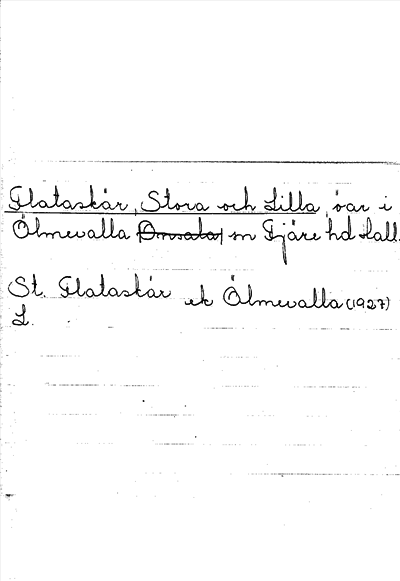 Flataskär, Stora och Lilla, öar i
Ölmevalla Onsala sn Fjäre hd Hall.
St. Flataskär ek Ölmevalla (1927)
L.